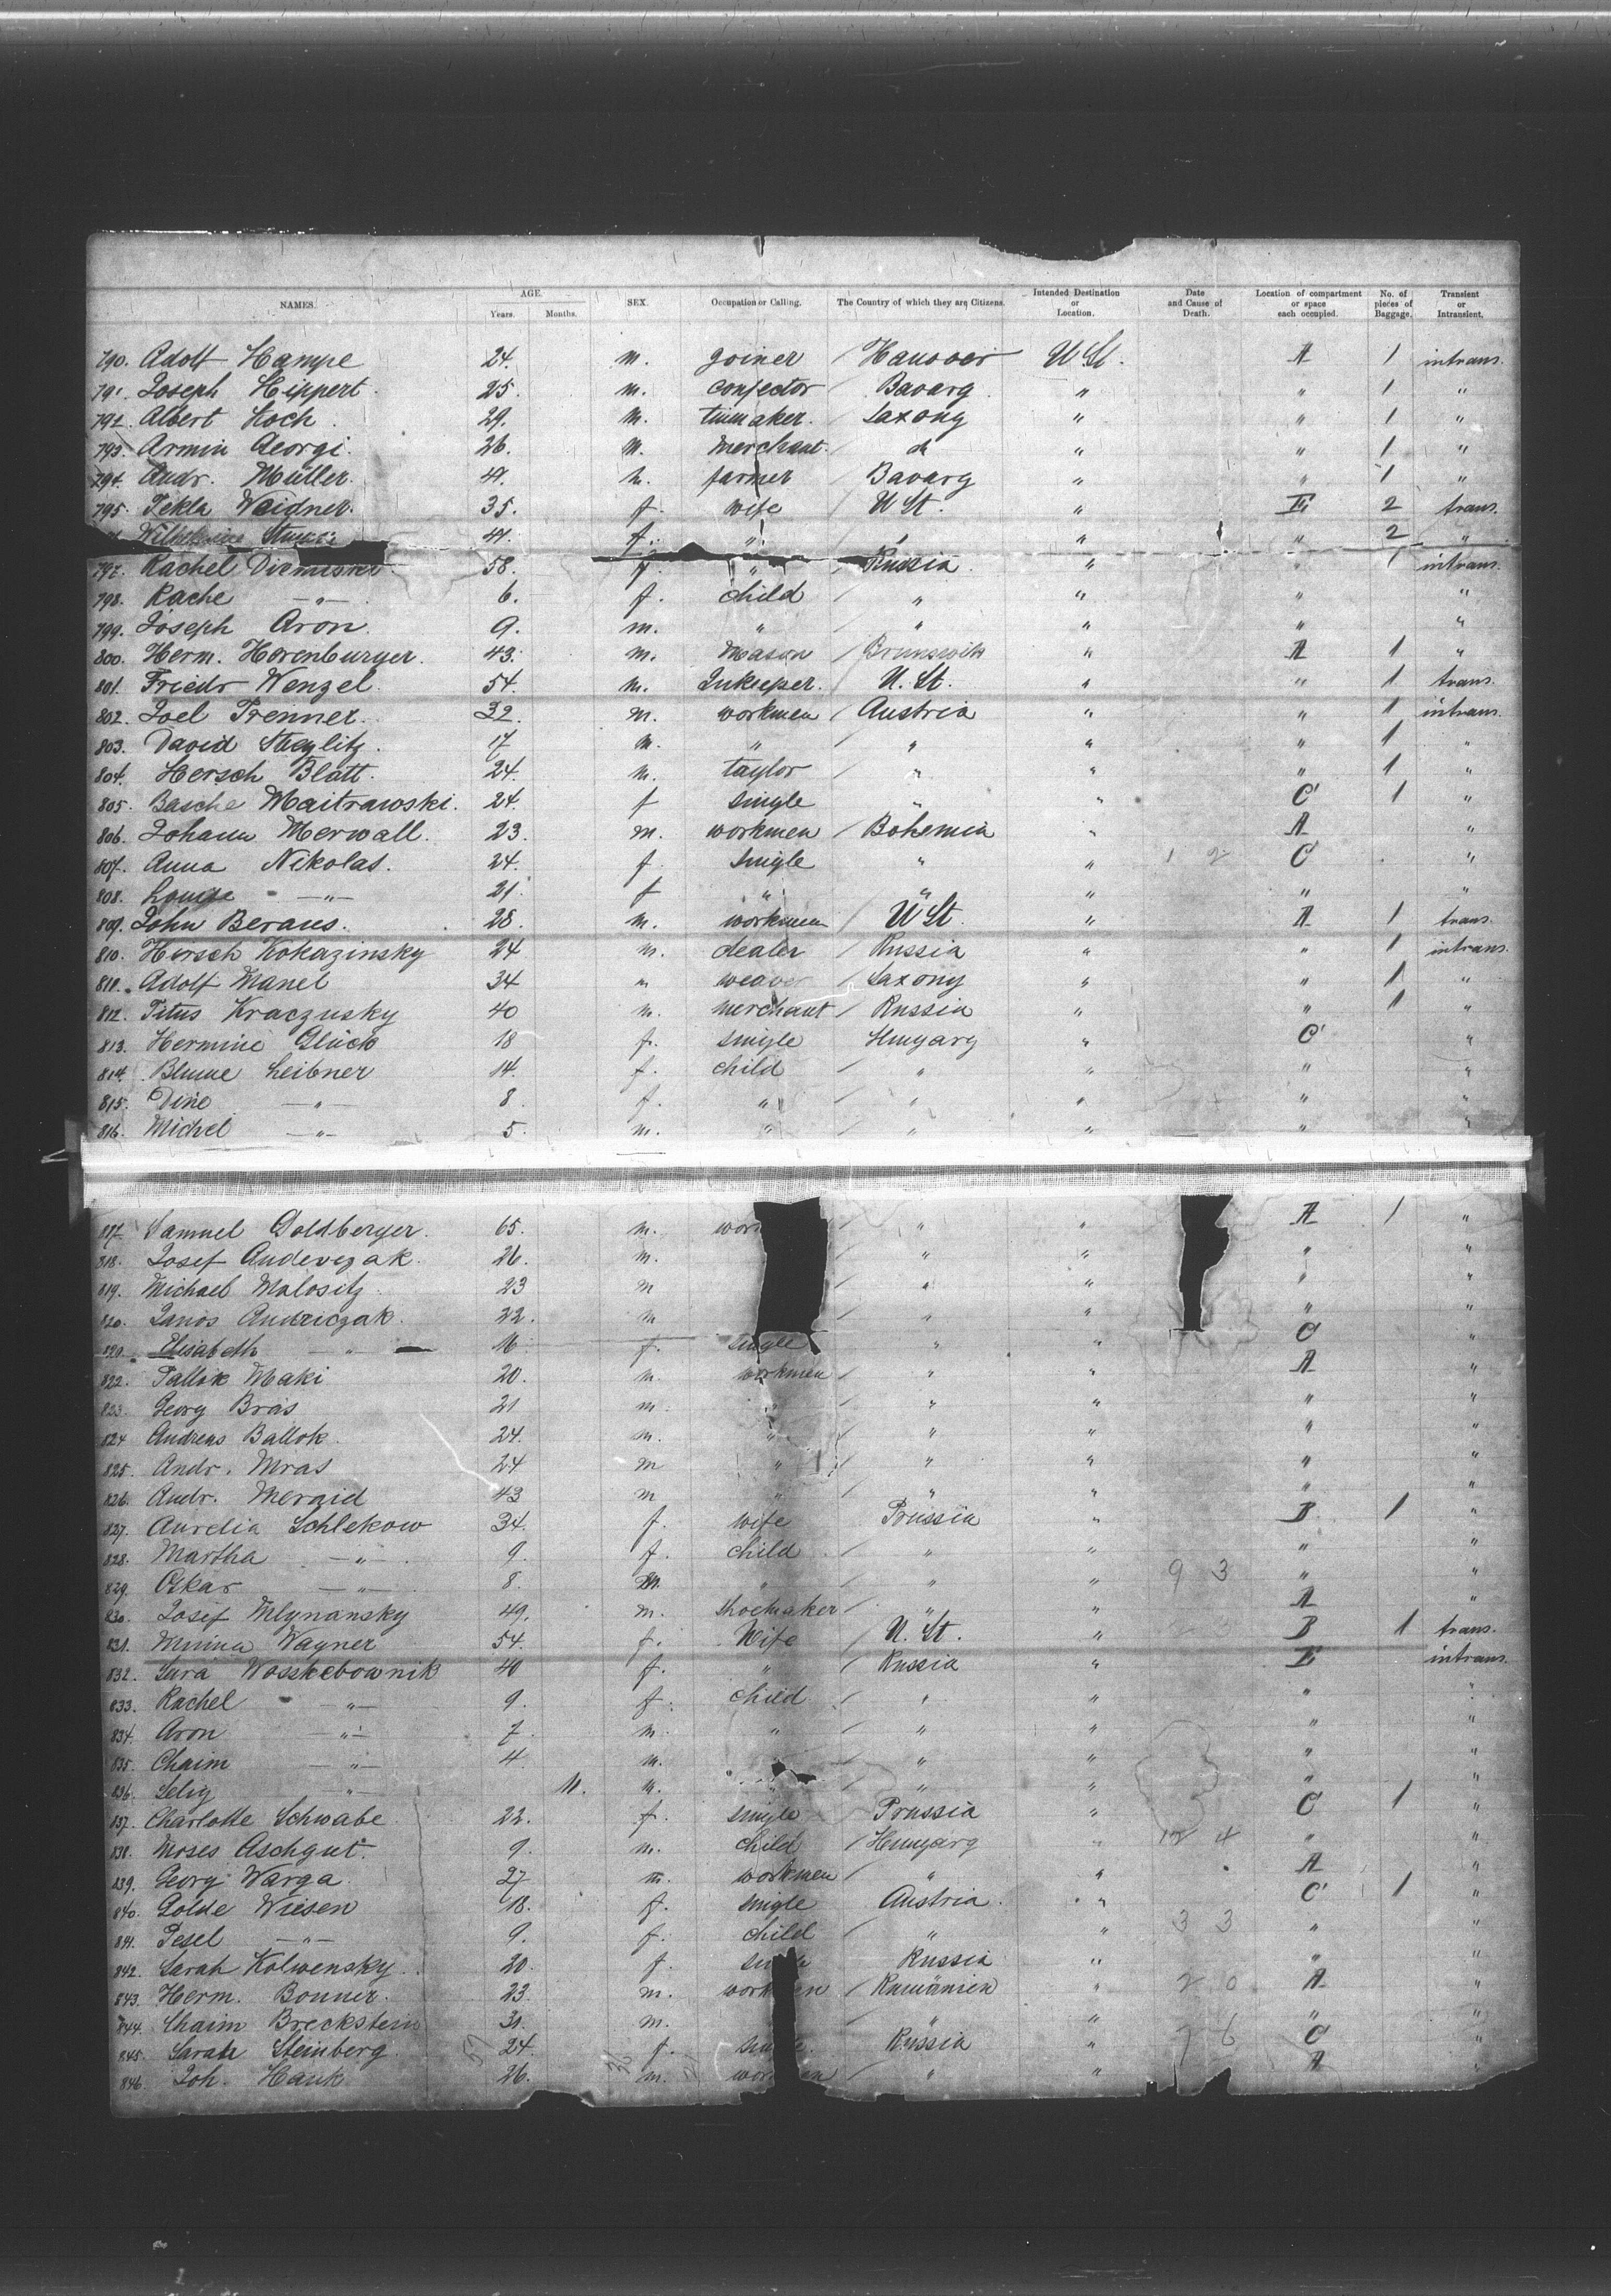 NAMES. AGE. Years. Months. SEX. Occupation or Calling. The Country of which they are Citizens. Intended Destination or Location. Date and Cause of Death. Location of compartment or space each occupied. No. of pieces of Baggage. Transient or Intransient.
790. Adolf Hampe 24. m. joiner / Hanover U St. A 1 intrans.
791. Joseph Hippert. 25. m. confector / Bavarg " " 1 "
792. Albert Koch. 29. m. tinmaker. / Saxony " " 1 "
793. Armin Georgi. 26. m. merchant. " " 1 "
794. Andr. Müller. m. farmer / Bavarg " " 1 "
795. Tekla Weidner. 35. f. wife / U St. " E 2 trans.
f. " " " 2 "
797. Rachel 58. f. " Russia. " " 1 intrans.
798. Rache —"— 6. f. child / " " " "
799. Joseph Aron. 9. m. " " " " "
800. Herm. Horenburger. 43. m. Mason / " A 1 "
801. Friedr Wenzel. 54. m. Inkeeper. / U. St. " " 1 trans.
802. Joel Trenner. 32. m. workmen / Austria " " 1 intrans.
803. David Steglitz. 17 m. " / " " " 1 "
804. Hersch Blatt. 24. m. taylor / " " " 1 "
805. Basche Maitrawski. 24. f single " " C 1 "
806. Johann Merwall. 23. m. workmen / Bohemia " A "
807. Anna Nikolas. 24. f. single " " 1 2 C "
808. Louise —"— 21. f " " " " "
809. John Beraus. 28. m. workmen / U St. " A 1 trans.
810. Hersch Kokazinsky 24 m. dealer / Russia " " 1 intrans.
811. Adolf Manel 34 " weaver / Saxony " " 1 "
812. Titus Kraczusky 40 m. merchant / Russia " " 1 "
813. Hermine Glück 18 f. single Hungary " C "
814. Blume Leibner 14. f. child / " " " "
815. Dine —"— 8. f. " / " " " "
816. Michel —"— 5. m. " / " " " "
817. Samuel Goldberger. 65. m. / " " A 1 "
818. Josef Andevczak. 26. m. " " " "
819. Michael Malositz. 23 m / " " " "
820. Janos Andriczak. 22. m / " " " "
Elisabeth —"— 16 f. single " " C "
822. Tallok Maki 20. m. workmen / " " A "
823. Georg Bras 21 m. " / " " " "
824 Andreas Ballok. 24. m. " / " " " "
825. Andr. Mras 24 m " / " " " "
826. Andr. Meraid 43 m " / " " " "
827. Aurelia Schlekow 34. f. wife Prussia " B 1 "
828. Martha —"— 9. f. child / " " " "
829. Oskar —"— 8. m. " / " " 9 3 " "
830. Josef Mlynansky 49. m. shoemaker / " " A "
831. Minna Wagner 54. f. Wife / U. St. " B 1 trans.
832. Sara Wosskebownik 40 f. " / Russia " E intrans.
833. Rachel —"— 9. f. child / " " " "
834. Aron —"— 7. m. " / " " " "
835. Chaim —"— 4. m. " / " " " "
836. Selig —"— m. " / " " " "
837. Charlotte Schwabe 22. f. single Prussia " C 1 "
838. Moses Aschgut. 9. m. child / Hungarg " 12 4 " "
839. Georg Warga. 27 m. workmen / " " A "
840. Golde Wiesen 18. f. single Austria. " C 1 "
841. Pesel —"— 9. f. child " " 3 3 " "
842. Sarah Kolwensky. 20. f. Russia " " "
843. Herm. Bonner. 23. m. / Rumänien " 2 0 A "
844. Chaim Breckstein 31. m. " " " "
845. Sarah Steinberg. 24. f. Russia " 7 6 C "
846. Joh. Hauk 26. m. " " A "